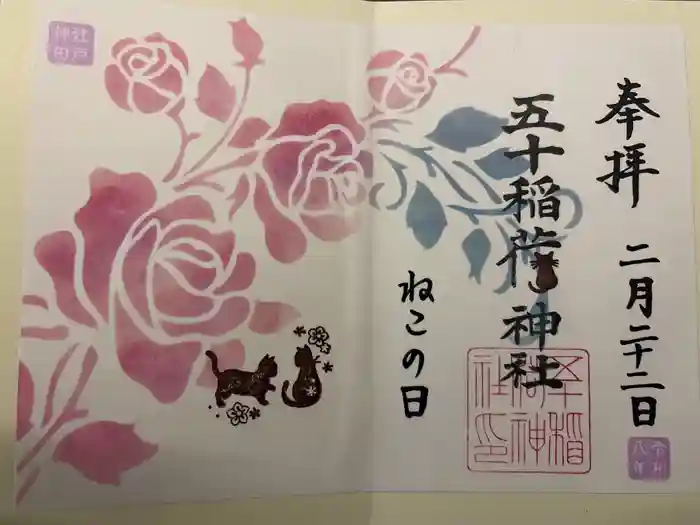 奉拝
二月二十二日
令和八年
五十稲荷神社
五十稲荷神社印
ねこの日
神田
社戸